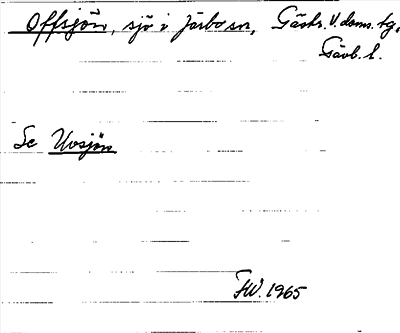 Offsjön, sjö i Järbo sn, Gästr. V. doms. tg,
Gävl. l.
Se Uvsjön
FW. 1965